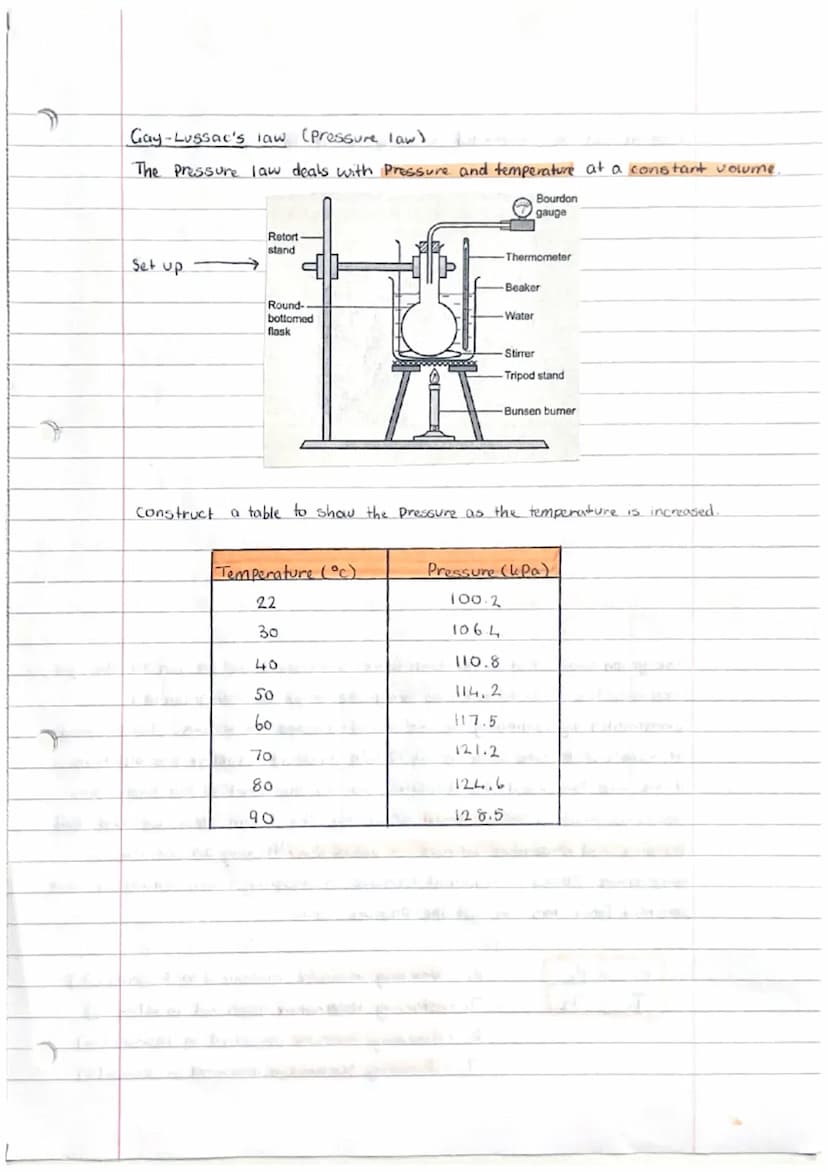 Gay-Lussac's law (Pressure law)
The Pressure law deals with Pressure and temperature at a constant volume.
Bourdon
gauge
Retort
stand
Set up
Thermometer
Beaker
Round-
bottomed
flask
Water
Stirrer
Tripod stand
Bunsen burner
Construct a table to show the Pressure as the temperature is increased.
Temperature (°C) Pressure (kPa)
22 100.2
30 106.4
40 110.8
50 114.2
60 117.5
70 121.2
80 124.6
90 128.5